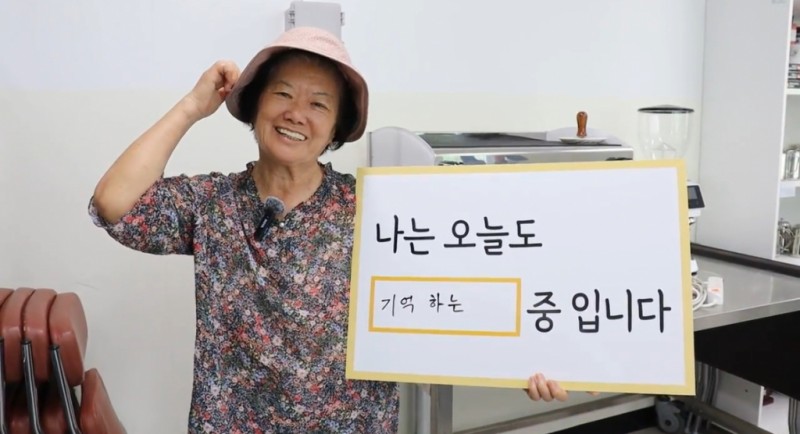 나는 오늘도
기억 하는 중 입니다